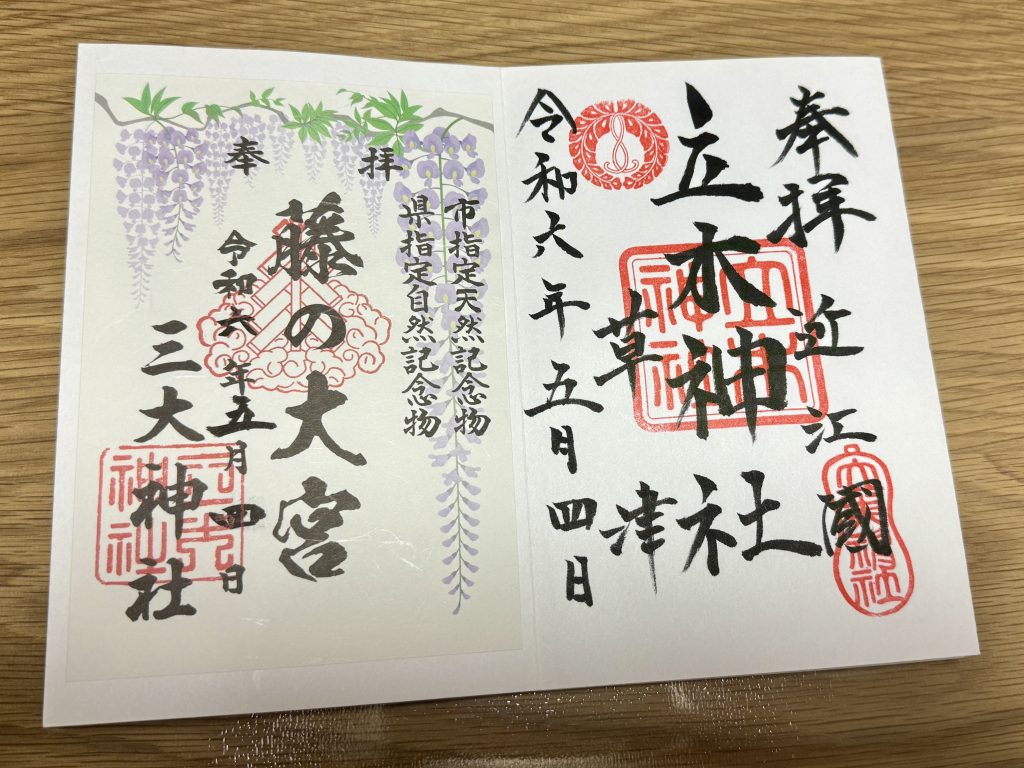 奉拝
近江國
立木神社
草津
令和六年五月四日
奉拝
市指定天然記念物
県指定自然記念物
藤の大宮
令和六年五月四日
三大神社
立木神社
三大神社